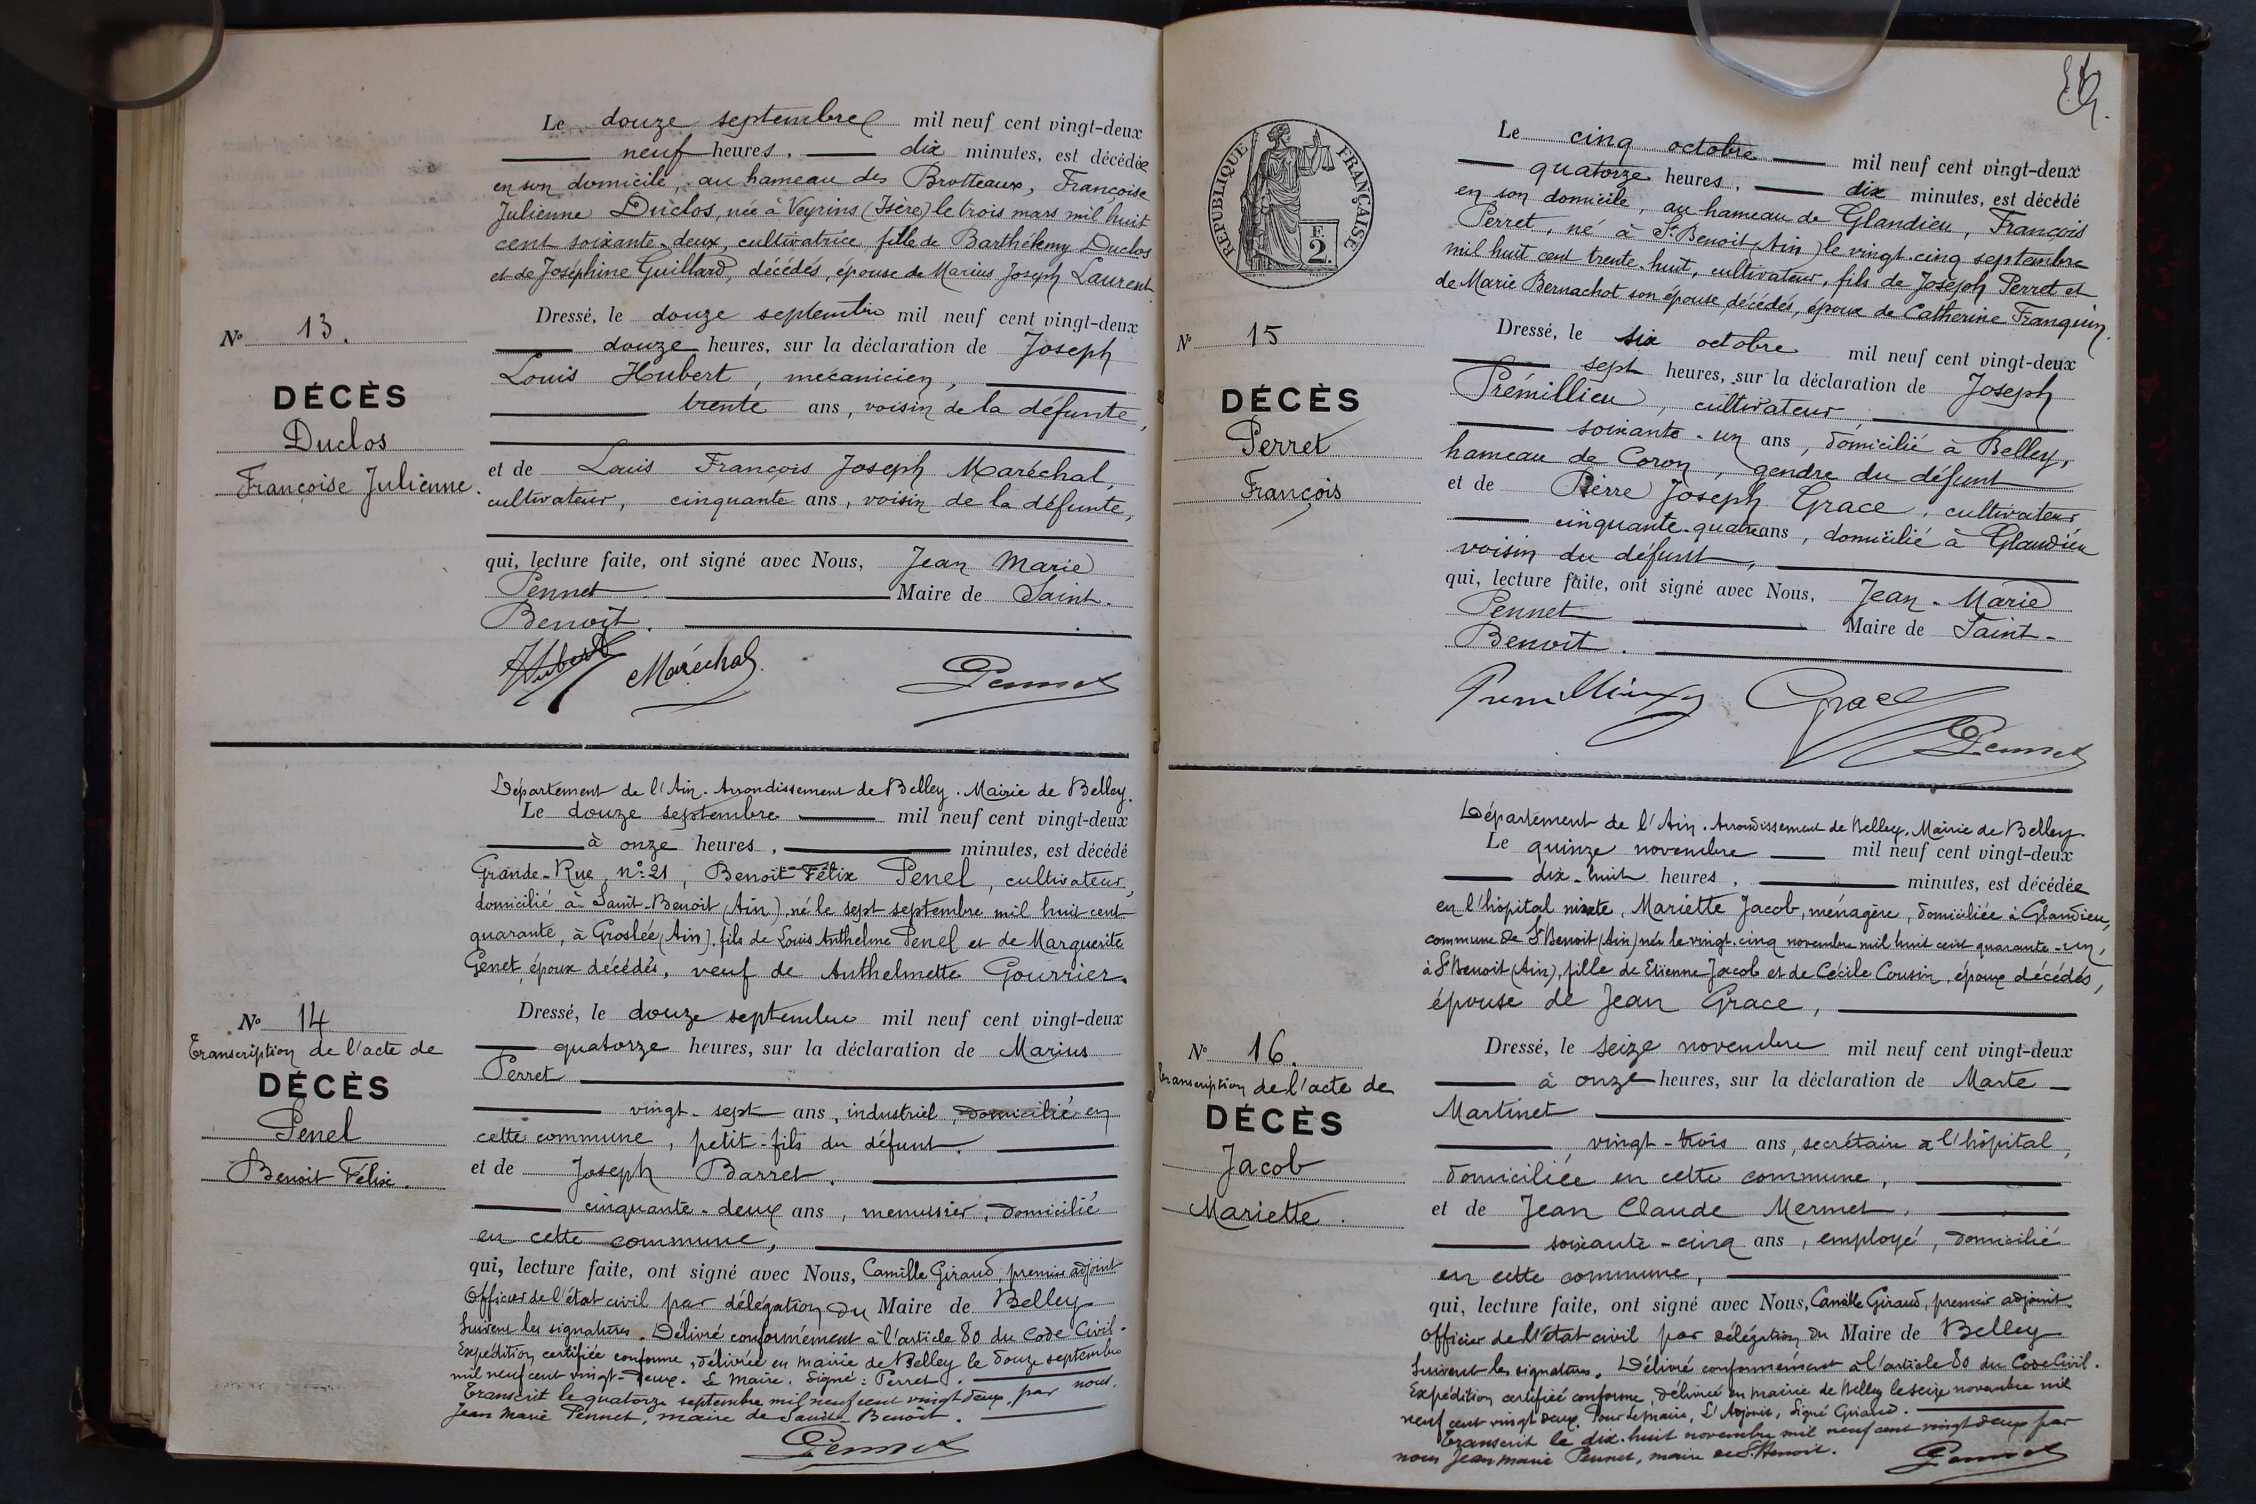 Le douze septembre mil neuf cent vingt-deux
neuf heures, dix minutes, est décédée
en son domicile, au hameau des Brotteaux, Françoise
Julienne Duclos, née à Veyrins (Isère) le trois mars mil huit
cent soixante-deux, cultivatrice, fille de Barthélemy Duclos
et de Joséphine Guillard, décédés, épouse de Marius Joseph Laurent.
Dressé, le douze septembre mil neuf cent vingt-deux
douze heures, sur la déclaration de Joseph
Louis Hubert, mécanicien,
trente ans, voisin de la défunte,
et de Louis François Joseph Maréchal,
cultivateur, cinquante ans, voisin de la défunte,
qui, lecture faite, ont signé avec Nous, Jean Marie
Pennet Maire de Saint-
Benoît.
Hubert Maréchal Pennet
No 13.
DÉCÈS
Duclos
Françoise Julienne.
Département de l'Ain. Arrondissement de Belley. Mairie de Belley.
Le douze septembre mil neuf cent vingt-deux
à onze heures, minutes, est décédé
Grande-Rue, n° 21, Benoit Félix Penel, cultivateur,
domicilié à Saint-Benoit (Ain), né le sept septembre mil huit cent
quarante, à Groslée (Ain), fils de Louis Anthelme Penel et de Marguerite
Genet, époux décédés, veuf de Anthelmette Gourrier.
Dressé, le douze septembre mil neuf cent vingt-deux
quatorze heures, sur la déclaration de Marius
Perret
vingt-sept ans, industriel, domicilié en
cette commune, petit-fils du défunt.
et de Joseph Barret.
cinquante-deux ans, menuisier, domicilié
en cette commune,
qui, lecture faite, ont signé avec Nous, Camille Giraud, premier adjoint
Officier de l'état civil par délégation du Maire de Belley
Suivent les signatures. Délivré conformément à l'article 80 du Code Civil.
Expédition certifiée conforme, délivrée en mairie de Belley le douze septembre
mil neuf cent vingt-deux. Le Maire. Signé: Perret.
Transcrit le quatorze septembre mil neuf cent vingt deux, par nous,
Jean Marie Pennet, maire de Saint-Benoît.
Pennet
No 14
Transcription de l'acte de
DÉCÈS
Penel
Benoit Félix.
RÉPUBLIQUE FRANÇAISE
F.
2.
Le cinq octobre mil neuf cent vingt-deux
quatorze heures, dix minutes, est décédé
en son domicile, au hameau de Glandieu, François
Perret, né à St Benoit (Ain) le vingt-cinq septembre
mil huit cent trente-huit, cultivateur, fils de Joseph Perret et
de Marie Bernachot son épouse, décédés, époux de Catherine Franquin.
Dressé, le six octobre mil neuf cent vingt-deux
sept heures, sur la déclaration de Joseph
Prémillieu, cultivateur
soixante-un ans, domicilié à Belley,
hameau de Coron, gendre du défunt
et de Pierre Joseph Grace, cultivateur
cinquante-quatre ans, domicilié à Glandieu
voisin du défunt,
qui, lecture faite, ont signé avec Nous, Jean-Marie
Pennet Maire de Saint-
Benoît.
Premillieux Grace
Pennet
No 15
DÉCÈS
Perret
François
Département de l'Ain. Arrondissement de Belley, Mairie de Belley.
Le quinze novembre mil neuf cent vingt-deux
dix-huit heures, minutes, est décédée
en l'hôpital mixte, Mariette Jacob, ménagère, domiciliée à Glandieu,
commune de St Benoit (Ain) née le vingt-cinq novembre mil huit cent quarante-un,
à St Benoit (Ain), fille de Etienne Jacob et de Cécile Cousin, époux décédés,
épouse de Jean Grace,
Dressé, le seize novembre mil neuf cent vingt-deux
à onze heures, sur la déclaration de Marte
Martinet
vingt-trois ans, secrétaire à l'hôpital,
domiciliée en cette commune,
et de Jean Claude Mermet,
soixante-cinq ans, employé, domicilié
en cette commune,
qui, lecture faite, ont signé avec Nous, Camille Giraud, premier adjoint
Officier de l'état civil par délégation du Maire de Belley
Suivent les signatures. Délivré conformément à l'article 80 du Code Civil.
Expédition certifiée conforme, délivrée en mairie de Belley le seize novembre mil
neuf cent vingt deux. Pour le maire, L'Adjoint, Signé Giraud.
Transcrit le dix-huit novembre mil neuf cent vingt deux par
nous Jean Marie Pennet, maire de St Benoit.
Pennet
No 16.
Transcription de l'acte de
DÉCÈS
Jacob
Mariette.